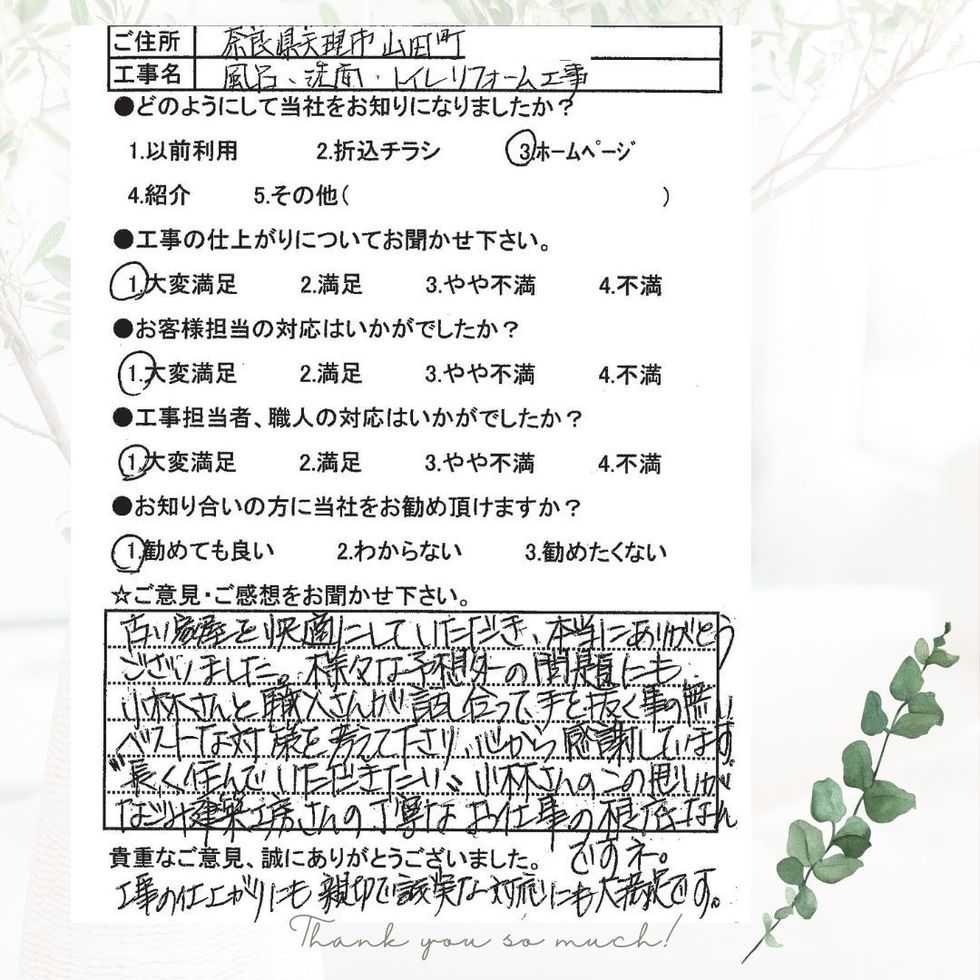 ご住所 奈良県天理市山田町
工事名 風呂、洗面・トイレリフォーム工事
●どのようにして当社をお知りになりましたか？
1.以前利用 2.折込チラシ 3.ホームページ
4.紹介 5.その他( )
●工事の仕上がりについてお聞かせ下さい。
1.大変満足 2.満足 3.やや不満 4.不満
●お客様担当の対応はいかがでしたか？
1.大変満足 2.満足 3.やや不満 4.不満
●工事担当者、職人の対応はいかがでしたか？
1.大変満足 2.満足 3.やや不満 4.不満
●お知り合いの方に当社をお勧め頂けますか？
1.勧めても良い 2.わからない 3.勧めたくない
☆ご意見・ご感想をお聞かせ下さい。
古い家屋を快適にしていただき、本当にありがとう
ございました。様々な予想外の問題にも
小林さんと職人さんが話し合って、手を抜く事の無い
ベストな対策を考えて下さり、心から感謝しています。
"長く住んでいただきたい" 小林さんのこの思いが
なごみ建築工房さんの丁寧なお仕事の根底なん
ですネ。
貴重なご意見、誠にありがとうございました。
工事の仕上がりにも親切で誠実な対応にも大満足です。
Thank you so much!